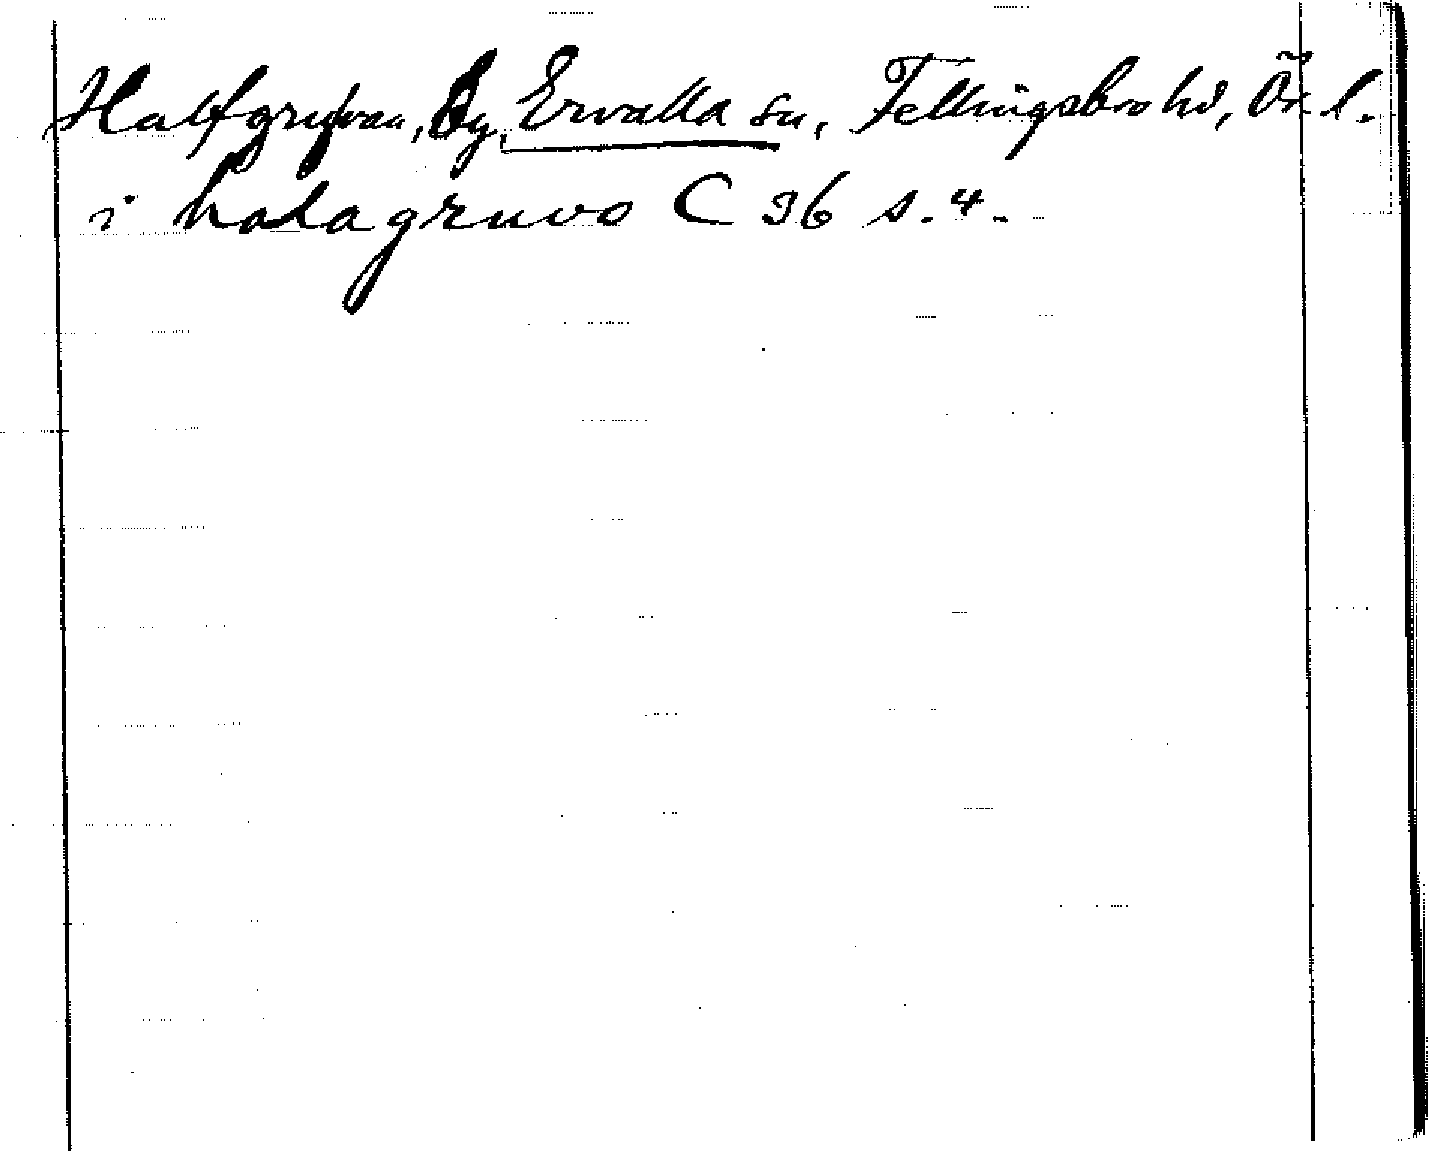 Halfgrufvan, By, Ervalla sn, Fellingsbro hd, Ör. l.
i halagruvo C 36 s. 4.